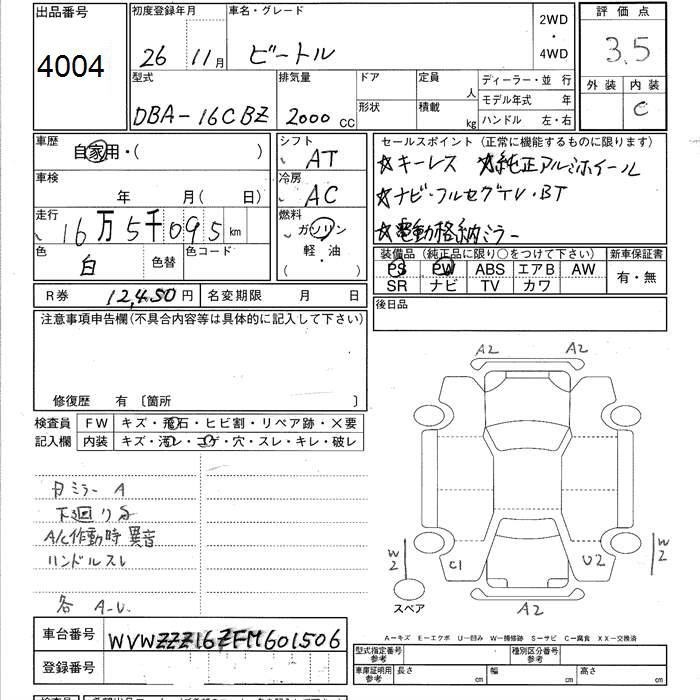 出品番号 初度登録年月 車名・グレード 2WD ・ 4WD 評価点
4004 26 11月 ビートル 3.5
型式 排気量 ドア 定員 人 ディーラー・並 行 外装 内装
DBA-16CBZ 2000 CC 形状 積載 kg モデル年式 年 C
ハンドル 左・右
車歴 自家用・( ) シフト AT セールスポイント (正常に機能するものに限ります)
☆キーレス ☆純正アルミホイール
車検 年 月( 日) 冷房 AC ☆ナビ・フルセグTV・BT
走行 16万5千095km 燃料 ガソリン 軽・油 ( ) ☆電動格納ミラー
色 白 色替 色コード 装備品 (純正品に限り○をつけて下さい) 新車保証書
PS PW ABS エアB AW 有・無
SR ナビ TV カワ
R券 12,450円 名変期限 月 日 後日品
注意事項申告欄(不具合内容等は具体的に記入して下さい)
修復歴 有 〔箇所 〕
A2 A2
検査員 FW キズ・飛石・ヒビ割・リペア跡・×要
記入欄 内装 キズ・汚レ・コゲ・穴・スレ・キレ・破レ
ミラー A
下廻りサ
A/C作動時異音
ハンドルスレ
各 A-U.
W2 C1 U2 W2
スペア A2
車台番号 WVWZZZ16ZFM601506
A-キズ E-エクボ U-凹み W-補修跡 S-サビ C-腐食 XX-交換済
登録番号 型式指定番号 参考 種別区分番号 参考
車庫証明用 参考 長さ cm 幅 cm 高さ cm